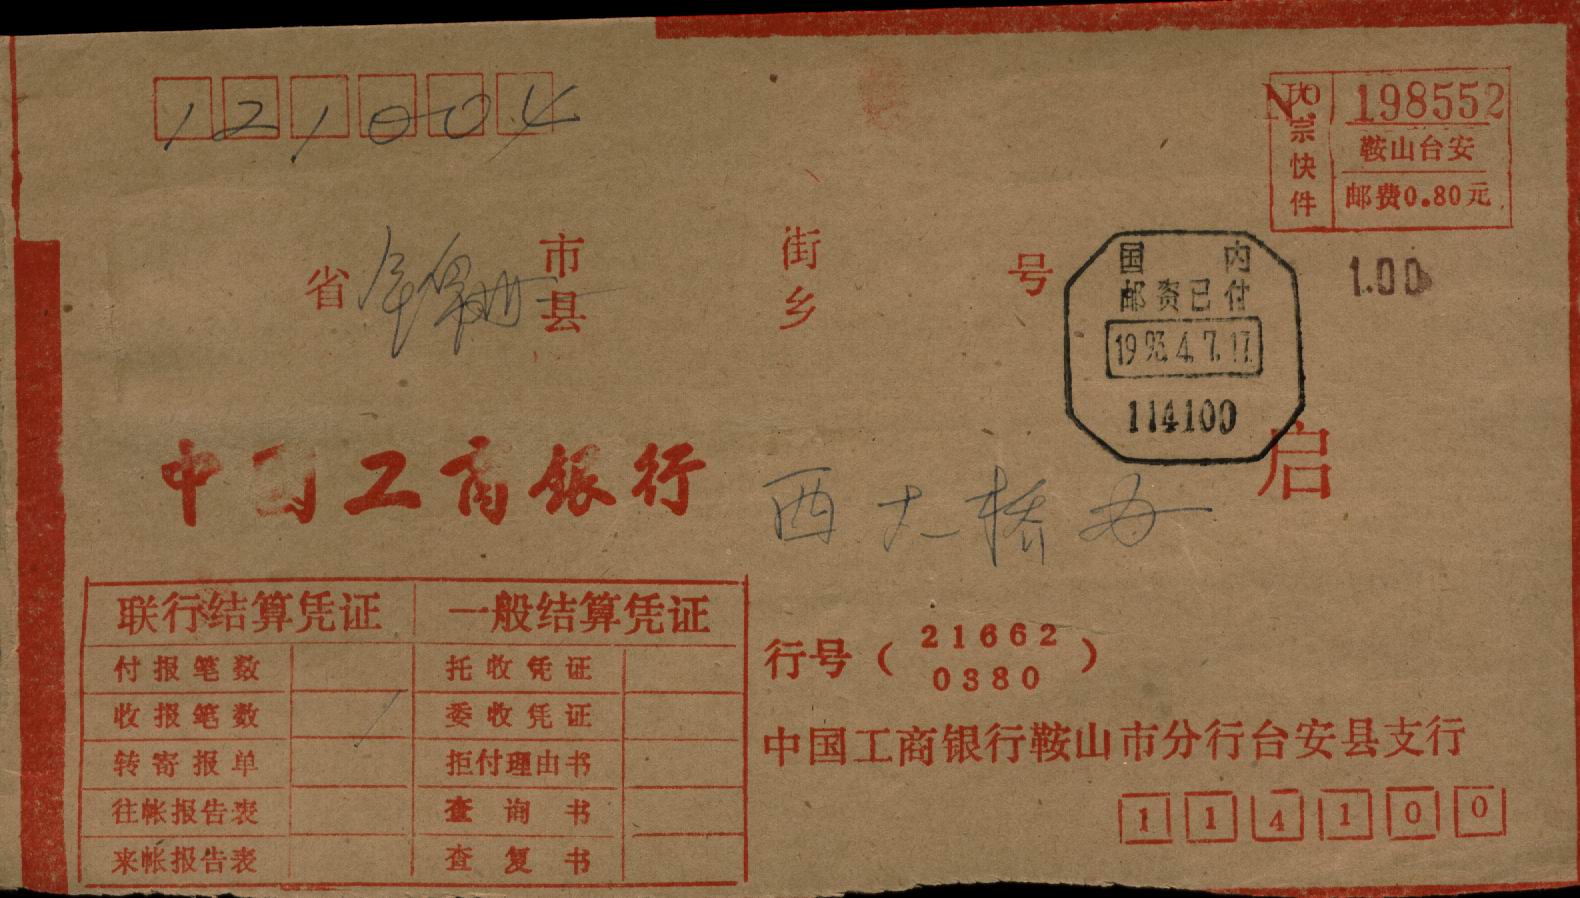 121004
NO 198552
大宗快件
鞍山台安
邮费0.80元
1.00
省 市县 街乡 号
国内
邮资已付
1993.4.7.17
114100
中国工商银行 西大桥办 启
联行结算凭证 一般结算凭证
付报笔数 托收凭证
收报笔数 委收凭证
转寄报单 拒付理由书
往帐报告表 查询书
来帐报告表 查复书
行号(21662 0380)
中国工商银行鞍山市分行台安县支行
114100